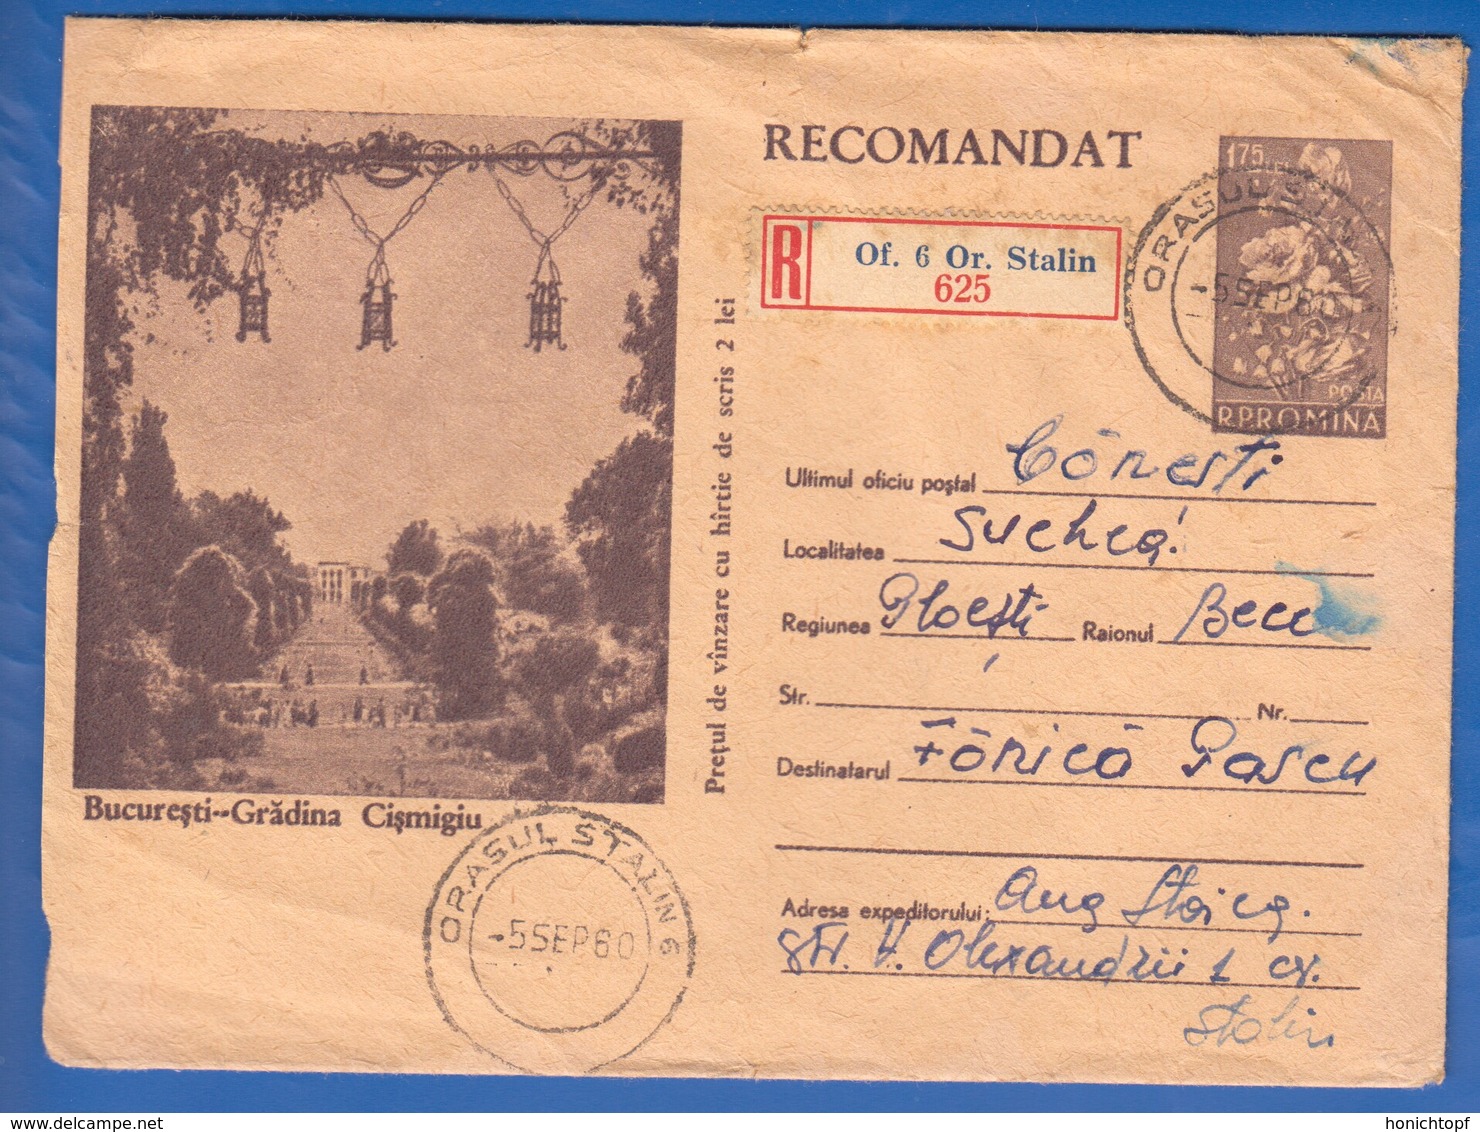 RECOMANDAT
1 75 LEI
POSTA
R.P.ROMINA
ORASUL ST
-5SEP60
R
Of. 6 Or. Stalin
625
Prețul de vînzare cu hîrtie de scris 2 lei
București--Grădina Cișmigiu
ORASUL STALIN 6
-5SEP60
Ultimul oficiu poștal
Localitatea
Regiunea Ploești Raionul
Str. Nr.
Destinatarul Fănică Pascu
Adresa expeditorului: Aug Stoica.
str. V. Alexandrii 1
Stalin
honichtopf